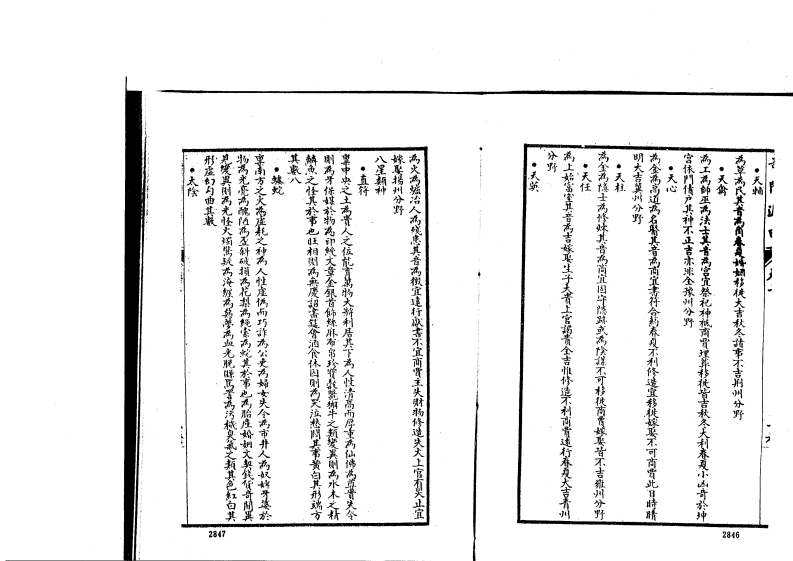 天輔
為草為民其音為商春夏婚姻移徙大吉秋冬諸事不吉荆州分野
天禽
為工為師巫為法士其音為宮宜祭祀神祗商賈埋葬移徙皆吉秋冬大利春夏小凶寄於坤
宮依門借户其神不正吉亦非全豫州分野
天心
為金為高道為名醫其音為商宜書符合藥春夏不利修造宜移徙嫁娶不可商賈此日時晴
明大吉冀州分野
天柱
為金為隱士為修煉其音為商宜固守隱跡或為陰謀不可移徙商賈嫁娶皆不吉雍州分野
天任
為土為富室其音為吉嫁娶生子大貴上官謁貴全吉惟修造不利商賈遠行春夏大吉青州
分野
天英
為火為爐冶人為殘患其音為徵宜遠行獻書不宜商賈主失財物修造失火上官有災止宜
嫁娶揚州分野
八星類神
直符
稟中央之土為貴人之位能育萬物大斯利居其下為人性清高而厚重為仙佛為尊貴失令
則為牙保媒於物為印綬文章金銀首飾絲麻布帛珍寶穀 獬牛之類變異則為水木之精
鱗魚之怪其於事也旺相則為無慶詔書筵會酒食休囚則為哭泣愁悶其事黄白其形端方
其數八
螣蛇
稟南方之火為虛耗之神為人性虛偽而巧詐為公吏為婦女失令為市井人為奴婢牙婆於
物為光亮為醜陋為歪斜破損為花梨為繩索為蛇其於事也為胎產婚姻文契錢貨奇聞異
見變異則為光怪火燭驚疑為海纏為異夢為血光膿 罵詈為污穢臭氣之類其色紅白其
形虛幻勾曲其數
太陰
2847
2846